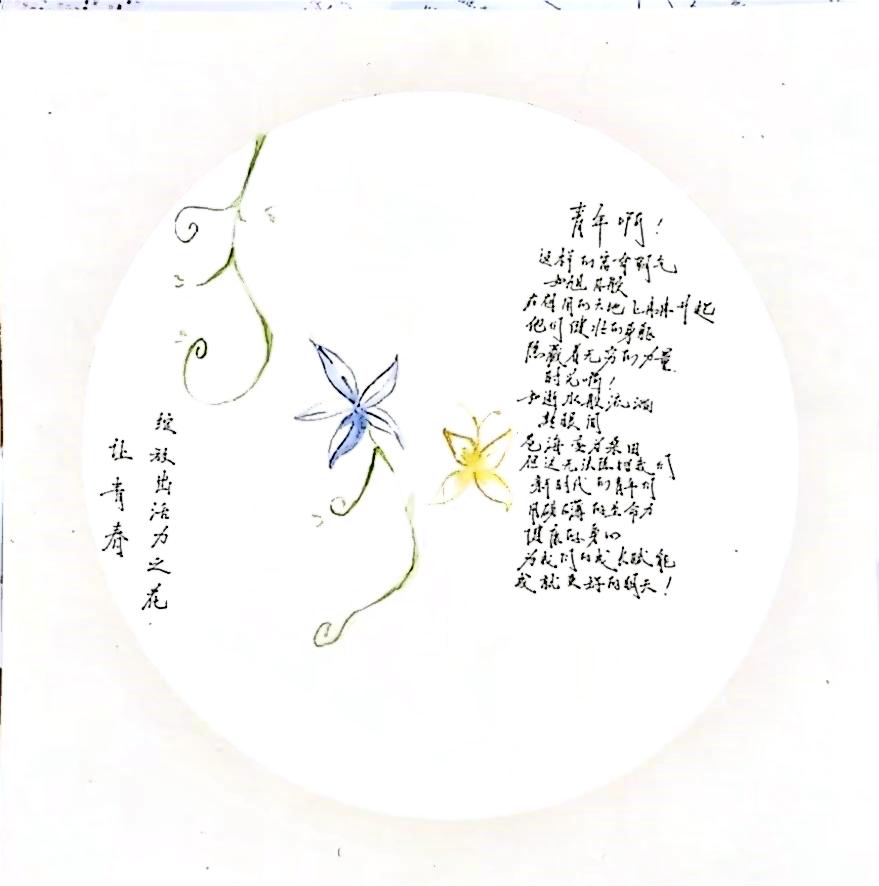 让青春
绽放出活力之花
青年啊！
这样的富有朝气
如旭日般
在辟开的天地上冉冉升起
他们健壮的身躯
隐藏着无穷的力量
时光啊！
如逝水般流淌
眼间
沧海变为桑田
但这无法阻挡我们
新时代的青年们
用磅礴的生命力
健康的身心
为我们的成长赋能
成就更好的明天！